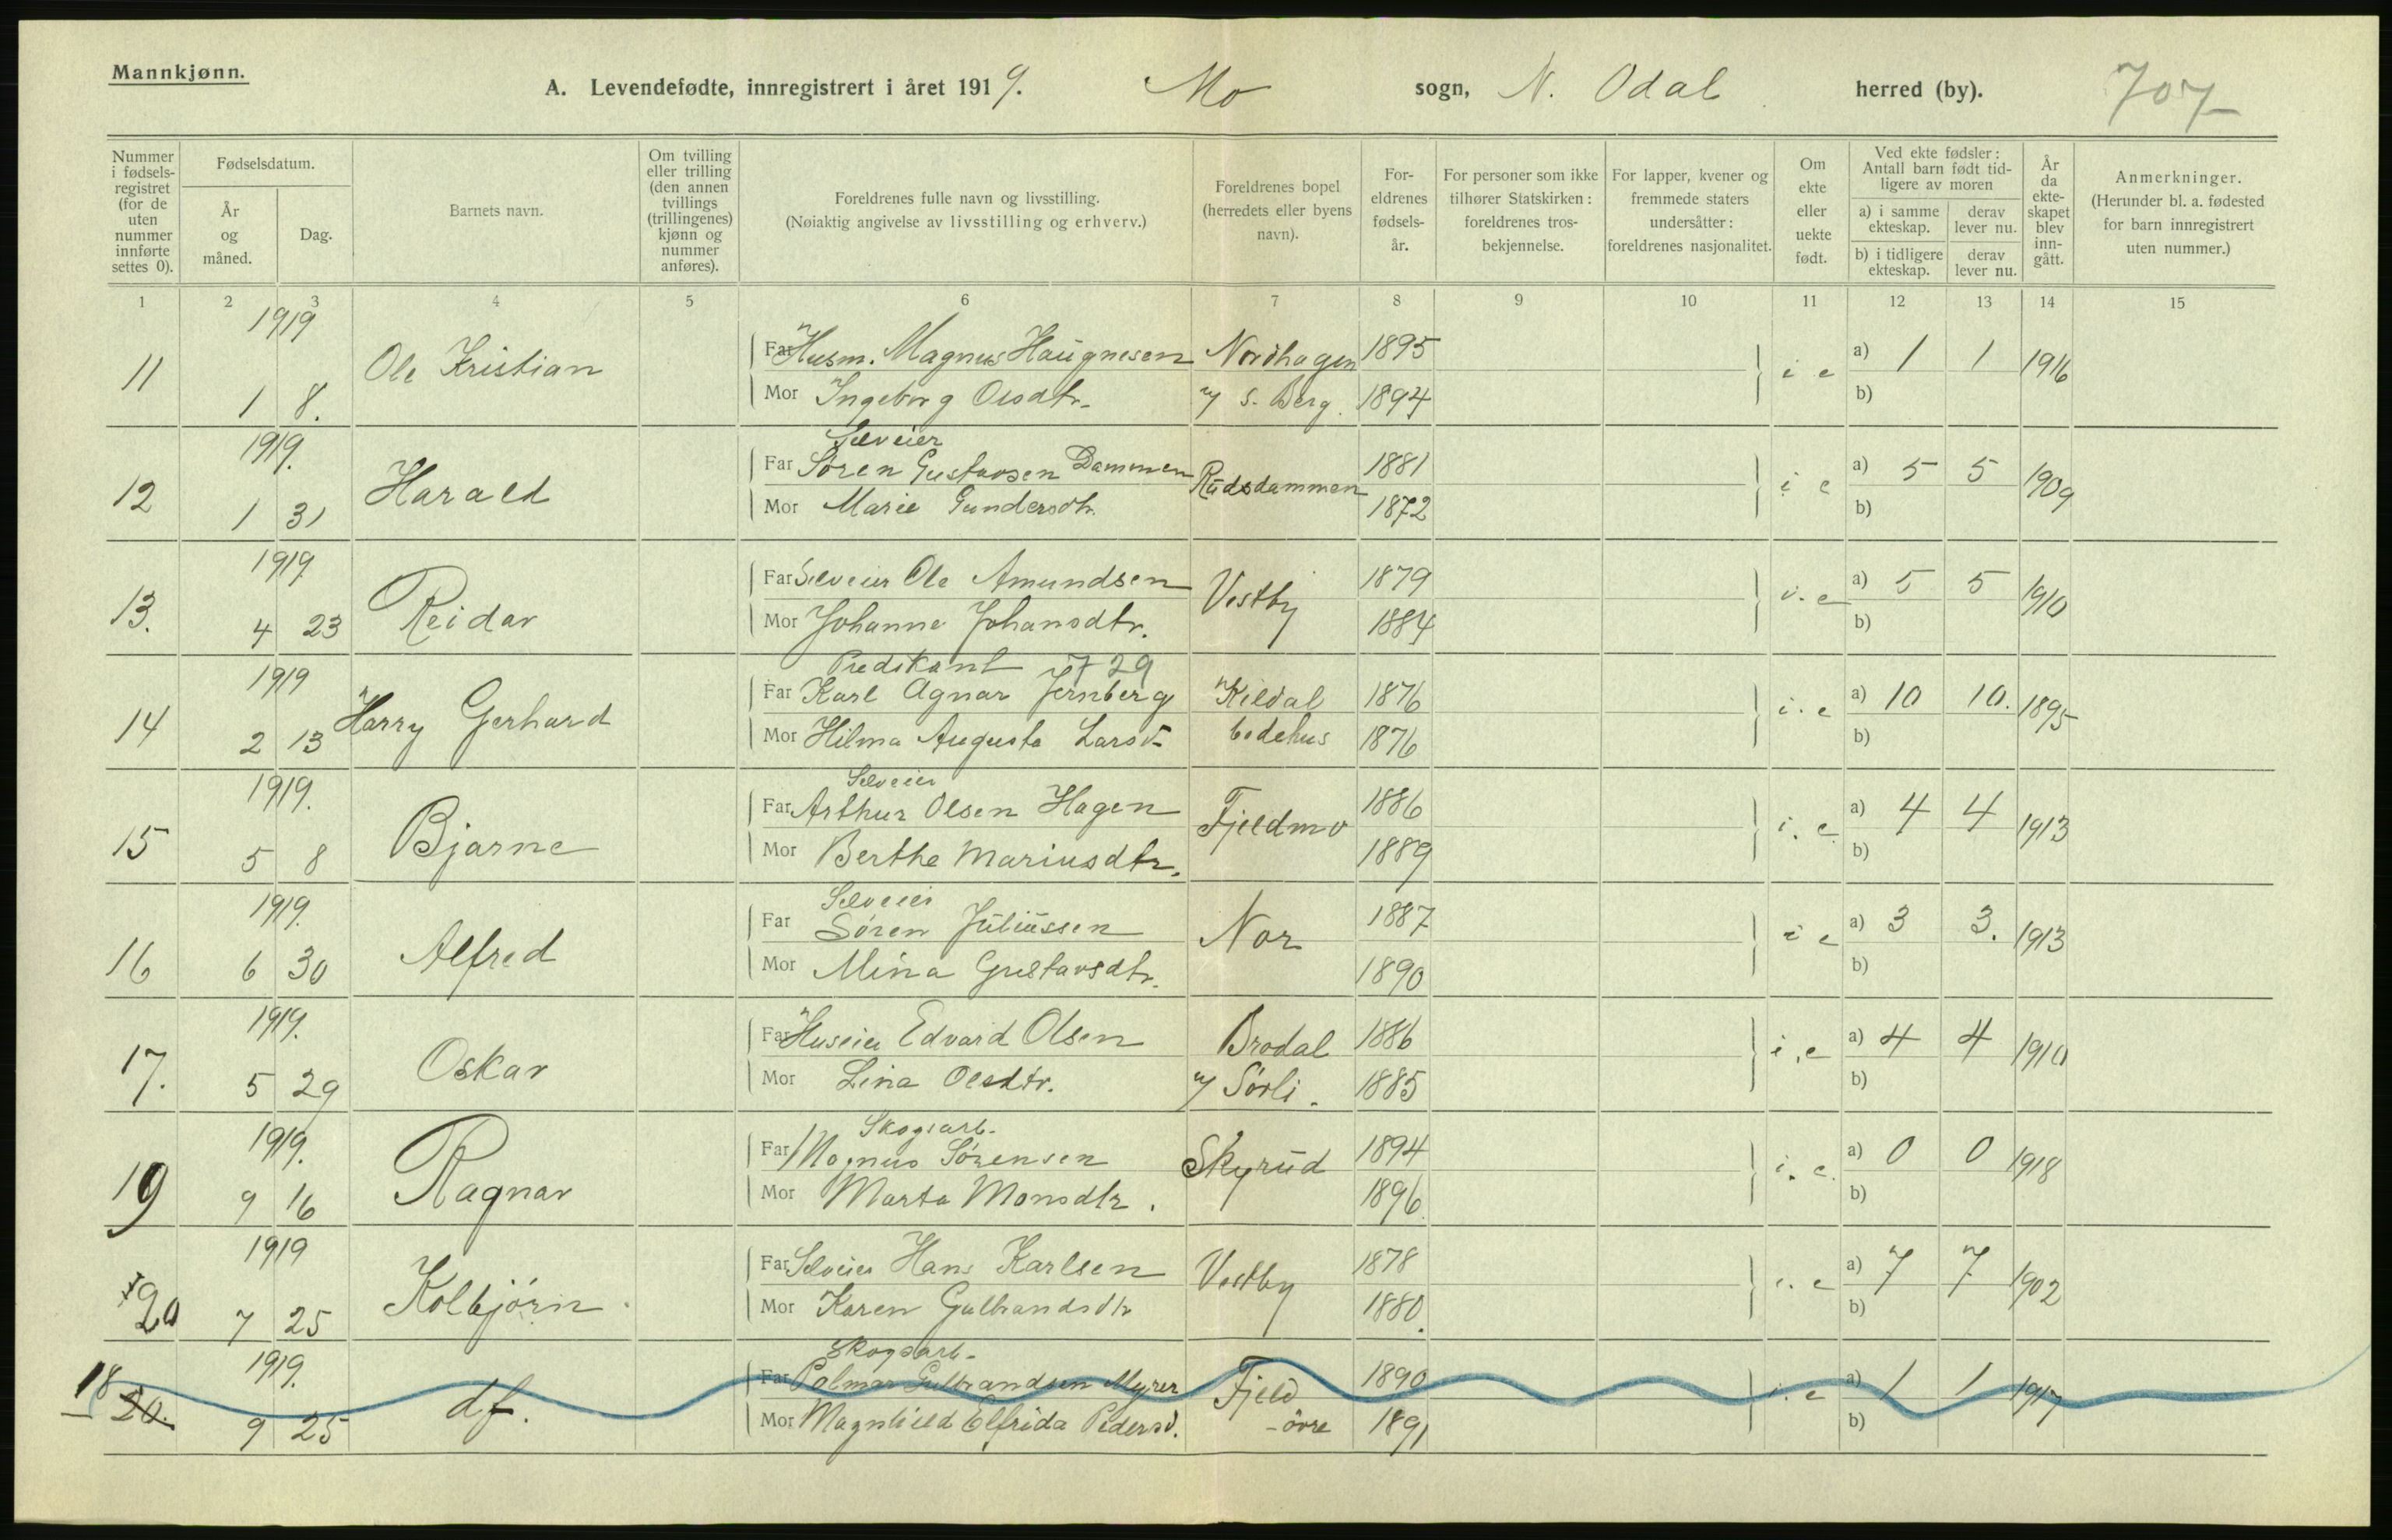 Mannkjønn.
A. Levendefødte, innregistrert i året 1919. Mo sogn, N. Odal herred (by). 707
Nummer i fødselsregistret (for de uten nummer innførte settes 0).
Fødselsdatum.
År og måned.
Dag.
Barnets navn.
Om tvilling eller trilling (den annen tvillings (trillingenes) kjønn og nummer anføres).
Foreldrenes fulle navn og livsstilling.
(Nøiaktig angivelse av livsstilling og erhverv.)
Foreldrenes bopel (herredets eller byens navn).
Foreldrenes fødselsår.
For personer som ikke tilhører Statskirken: foreldrenes trosbekjennelse.
For lapper, kvener og fremmede staters undersåtter: foreldrenes nasjonalitet.
Om ekte eller uekte født.
Ved ekte fødsler: Antall barn født tidligere av moren
a) i samme ekteskap. derav lever nu.
b) i tidligere ekteskap. derav lever nu.
År da ekteskapet blev inngått.
Anmerkninger.
(Herunder bl. a. fødested for barn innregistrert uten nummer.)
1 2 3 4 5 6 7 8 9 10 11 12 13 14 15
1919
11 1 8. Ole Kristian
Far Husm. Magnus Haugnesen Nordhagen 1895 i e a) 1 1 1916
Mor Ingeborg Olsdtr. s. Berg. 1894 b)
1919. Selveier
12 1 31 Harald
Far Søren Gustavsen Dammen Rudsdammen 1881 i e a) 5 5 1909
Mor Marie Gundersdtr. 1872 b)
1919
13. 4 23 Reidar
Far Selveier Ole Amundsen Vestby 1879 i. e a) 5 5 1910
Mor Johanne Johansdtr. 1884 b)
1919 Predikant 29
14 2 13 Harry Gerhard
Far Karl Agnar Jernberg Kildal 1876 i. e a) 10 10. 1895
Mor Hilma Augusta Larsd. bedehus 1876 b)
1919. Selveier
15 5 8 Bjarne
Far Arthur Olsen Hagen Fjeldmo 1886 i. e a) 4 4 1913
Mor Berthe Mariusdtr. 1889 b)
1919. Selveier
16 6 30 Alfred
Far Søren Juliussen Nor 1887 i e a) 3 3. 1913
Mor Mina Gustavsdtr. 1890 b)
1919.
17. 5 29 Oskar
Far Huseier Edvard Olsen Brodal 1886 i. e a) 4 4 1910
Mor Lina Olsdtr. Sörli. 1885 b)
1919. Skogsarb.
19 9 16 Ragnar
Far Magnus Sørensen Skyrud 1894 i. e. a) 0 0 1918
Mor Marta Monsdtr. 1896 b)
1919
20 7 25 Kolbjörn
Far Selveier Hans Karlsen Vestby 1878 i. e a) 7 7 1902
Mor Karen Gulbrandsdtr 1880. b)
1919. Skogsarb.
18 20. 9 25 df.
Far Palmar Gulbrandsen Myrer Fjeld 1890 i. e a) 1 1 1917
Mor Magnhild Elfrida Pedersd. -övre 1891 b)